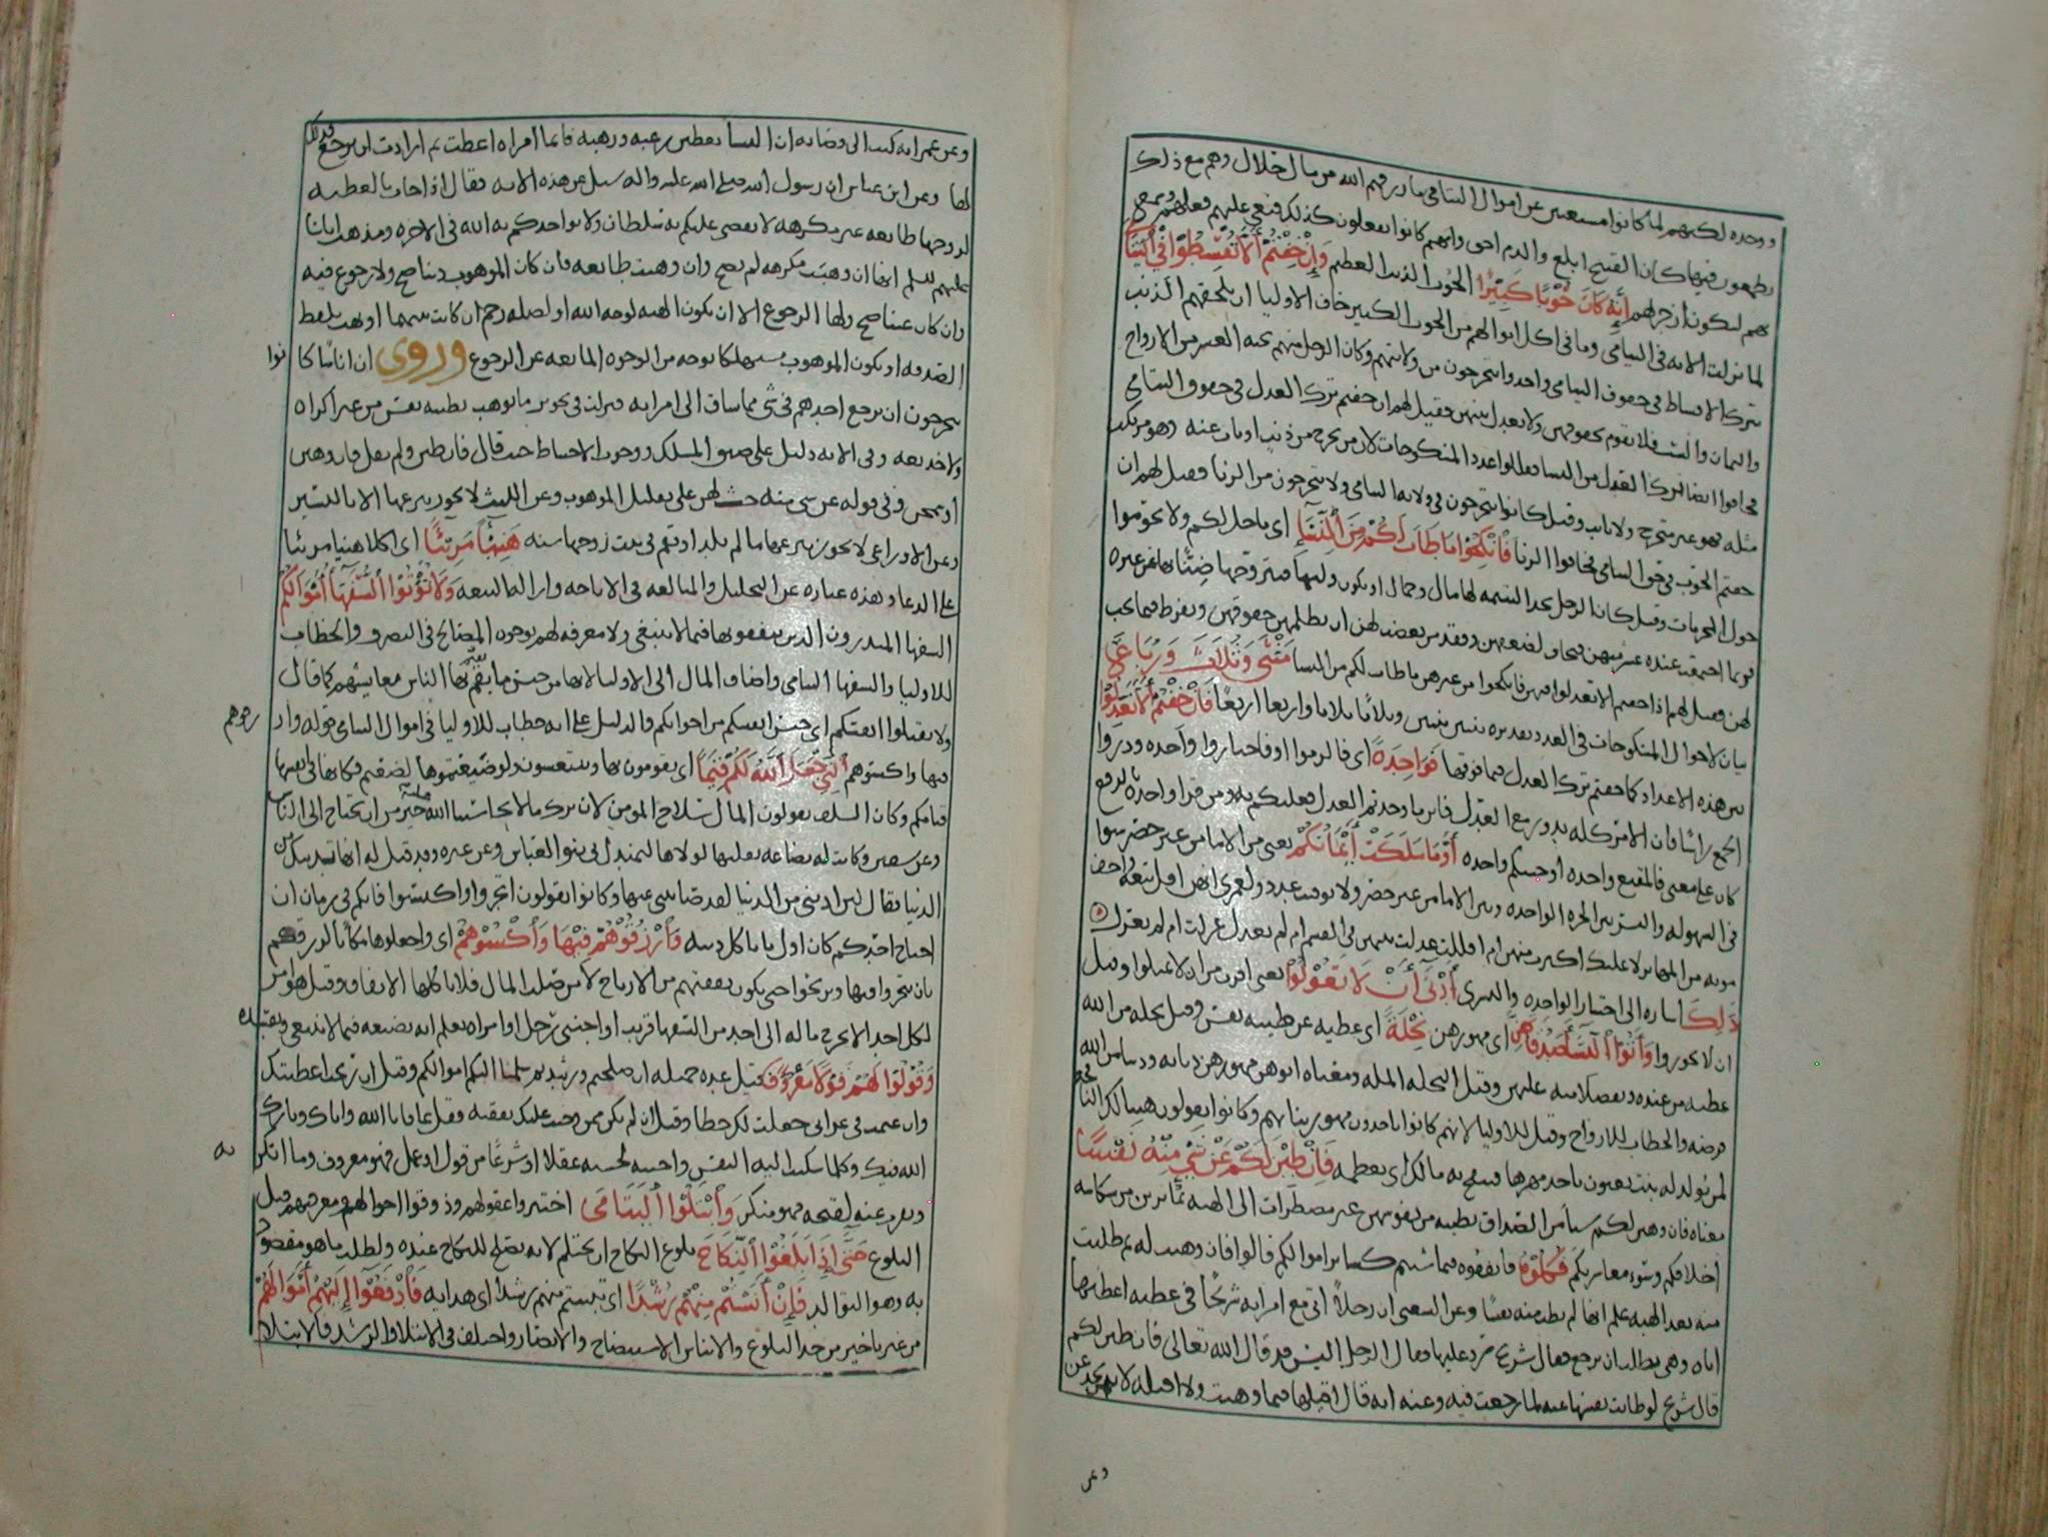 ووحده لكنهم لما كانوا مستغنين عن اموال اليتامى بما رزقهم الله من مال حلال وهم مع ذلك
يطمعون فيها كان القبح ابلغ والذم احق ولانهم كانوا يفعلون كذلك فنعى عليهم فعلهم وسمع
بهم ليكون ازجر لهم إِنَّهُ كَانَ حُوْبًا كَبِيْرًا الحوب الذنب العظيم وَإِنْ خِفْتُمْ أَلاَّ تُقْسِطُوْا فِي الْيَتَامَى
لما نزلت الايه في اليتامى وما في اكل اموالهم من الحوب الكبير خاف الاوليا ان يلحقهم الحوب
بترك الاقساط في حقوق اليتامى واخذوا يتحرجون من ولايتهم وكان الرجل منهم تحته العشر من الازواج
والثمان والست فلا يقوم بحقوقهن ولا يعدل بينهن فقيل لهم ان خفتم ترك العدل في حقوق اليتامى
فخافوا ايضا ترك العدل من النسا فقللوا عدد المنكوحات لان من تحرج من ذنب او تاب عنه وهو مرتكب
مثله فهو غير متحرج ولا تايب وقيل كانوا يتحرجون في ولايه اليتامى ولا يتحرجون من الزنا فقيل لهم ان
خفتم الحوب في حق اليتامى فخافوا الزنا فَانْكِحُوْا مَا طَابَ لَكُمْ مِنَ النِّسَآءِ اي ما حل لكم ولا تحوموا
حول المحرمات وقيل كان الرجل يجد اليتيمه لها مال وجمال او يكون وليها فيتزوجها ضنًّا بها عن غيره
فربما اجتمعت عنده عشر منهن فيخاف لضعفهن وفقد من يغضب لهن ان يظلمهن حقوقهن ويفرط فيما يجب
لهن فقيل لهم اذا خفتم الا تعدلوا فيهن فانكحوا من غيرهن ما طاب لكم من النسا مَثْنَى وَثُلَاثَ وَرُبَاعَ
بيان لاحوال المنكوحات في العدد تقديره ثنتين ثنتين وثلاثا ثلاثا واربعا اربعا فَإِنْ خِفْتُمْ أَلَّا تَعْدِلُوْا
بين هذه الاعداد كما خفتم ترك العدل فيما فوقها فَوَاحِدَةً اي فالزموا او فاختاروا واحده وذروا
الجمع راسًا فان الامر كله يدور مع العدل فاين ما وجدتم العدل فعليكم به ومن قرا واحدة بالرفع
كان على معنى فالمقنع واحده او حسبكم واحده أَوْ مَا مَلَكَتْ أَيْمَانُكُمْ يعني من الاما من غير حصر سوا
في السهوله واليسر بين الحره الواحده وبين الاما من غير حصر ولا توقيت عدد ولعمري انهن اقل تبعة واخف
مونه من المهاير لا عليك اكثرت منهن ام اقللت عدلت بينهن في القسم ام لم تعدل عزلت ام لم تعزل
ذَلِكَ اشاره الى اختيار الواحده والتسري أَدْنَى أَنْ لَا تَعُوْلُوْا يعني اقرب من ان لا تميلوا وقيل
ان لا تجوروا وَآتُوا النِّسَآءَ صَدُقَاتِهِنَّ اي مهورهن نِحْلَةً اي عطيه عن طيبه نفس وقيل نحله من الله
عطيه من عنده وتفضلا منه عليهن وقيل النحله المله ومعناه اتوهن مهورهن ديانه ودينا من الله
فرضه والخطاب للازواج وقيل للاوليا لانهم كانوا ياخذون مهور بناتهم وكانوا يقولون هنيا لك النافجه
لمن تولد له بنت يعنون تاخذ مهرها فتنفج به مالك اي تعظمه فَإِنْ طِبْنَ لَكُمْ عَنْ شَيْءٍ مِنْهُ نَفْسًا
معناه فان وهبن لكم شيا من الصداق بطيبه من نفوسهن غير مضطرات الى الهبه بما يرين من شكاسه
اخلاقكم وسوء معاشرتكم فَكُلُوْهُ فانفقوه فيما شئتم كساير اموالكم قالوا فان وهبت له ثم طلبت
منه بعد الهبه علم انها لم تطب منه نفسًا وعن الشعبي ان رجلًا اتى مع امراته شريحًا في عطيه اعطتها
اياه وهي تطلب ان ترجع فقال شريح رد عليها فقال الرجل اليس قد قال الله تعالى فان طبن لكم
قال شريح لو طابت نفسها عنه لما رجعت فيه وعنه انه قال اقيلها فيما وهبت ولا اقيله لانهن يخدعن
وعن
وعن عمر انه كتب الى قضاته ان النسا يعطين رغبه ورهبه فايما امراه اعطت ثم ارادت ان ترجع فذلك
لها وعن ابن عباس ان رسول الله صلى الله عليه واله سيل عن هذه الايه فقال اذا جادت بالعطيه
لزوجها طايعه غير مكرهه لا يقضي عليكم به سلطان ولا يواخذكم به الله في الاخره ومذهب ايمتنا
عليهم السلم انها ان وهبت مكرهه لم يصح وان وهبت طايعه فان كان الموهوب دينا صح ولا رجوع فيه
وان كان عينا صح ولها الرجوع الا ان تكون الهبه لوجه الله او لصله رحم ان كانت بينهما او لهت بلفظ
الصدقه او يكون الموهوب مستهلكا بوجه من الوجوه المانعه عن الرجوع وروي ان اناسًا كا
نوا
يتحرجون ان يرجع احدهم في شي مما ساق الى امراته فنزلت في تجويز ما توهب بطيبه نفس من غير اكراه
ولا خديعه وفي الايه دليل على ضيق المسلك ووجوب الاحتياط حيث قال فان طبن ولم يقل فان وهبن
او سمحن وفي قوله عن شي منه حث لهن على تقليل الموهوب وعن الليث لا يجوز تبرعها الا باليسير
وعن الاوزاعي لا يجوز تبرعها ما لم تلد او تقم في بيت زوجها سنه هَنِيْئًا مَرِيْئًا اي اكلا هنيا مريئا
على الدعا وهذه عباره عن التحليل والمبالغه في الاباحه وازاله التبعه وَلَا تُؤْتُوا السُّفَهَآءَ أَمْوَالَكُمُ
السفها المبذرون الذين ينفقونها فيما لا ينبغي ولا معرفه لهم بوجوه المصالح في التصرف والخطاب
للاوليا والسفها اليتامى واضاف المال الى الاوليا لانها من جنس ما يقيم به الناس معايشهم كما قال
ولا تقتلوا انفسكم اي جنس انفسكم من اخوانكم والدليل على انه خطاب للاوليا في اموال اليتامى قوله وار
زقوهم
فيها واكسوهم الَّتِيْ جَعَلَ اللَّهُ لَكُمْ قِيَامًا اي يقومون بها وينتعشون ولو ضيعتموها لضعتم فكانها في انفسها
قيامكم وكان السلف يقولون المال سلاح المومن لان نترك مالا يحاسبنا الله عليه خير من ان نحتاج الى الناس
وعن سفين وكانت له بضاعه يقلبها لولاها لتمندل بي بنوا العباس وعن غيره وقد قيل له انها تدنيك من
الدنيا فقال لين ادنتني من الدنيا لقد صانتني عنها وكانوا يقولون اتجروا واكتسبوا فانكم في زمان ان
احتاج احدكم كان اول ما ياكل دينه وَارْزُقُوْهُمْ فِيْهَا وَاكْسُوْهُمْ اي واجعلوها مكانًا لرزقهم
بان تتجروا فيها وتربحوا حتى يكون نفقتهم من الارباح لا من صلب المال فلا ياكلها الانفاق وقيل هو امر
لكل احد الا يخرج ماله الى احد من السفها قريب او اجنبي رجل او امراه يعلم انه يضيعه فيما لا ينبغي ويفسده
وَقُوْلُوْا لَهُمْ قَوْلًا مَعْرُوْفًا قيل عده جميله ان صلحتم ورشدتم سلمنا اليكم اموالكم وقيل ان ربحت اعطيتك
وان غنمت في غزاتي جعلت لك حظا وقيل ان لم يكن ممن وجبت عليك نفقته فقل عافانا الله واياك وبارك
الله فيك وكلما سكنت اليه النفس واحبته لحسنه عقلا او شرعًا من قول او عمل فهو معروف وما انكر
ته
ونفرت عنه لقبحه فهو منكر وَابْتَلُوا الْيَتَامَى اختبروا عقولهم وذوقوا احوالهم ومعرفتهم قبل
البلوغ حَتَّى إِذَا بَلَغُوا النِّكَاحَ بلوغ النكاح ان يحتلم لانه يصلح للنكاح عنده ولطلب ما هو مقصود
به وهو التوالد فَإِنْ آنَسْتُمْ مِنْهُمْ رُشْدًا اي تبينتم منهم رشدا اي هدايه فَادْفَعُوْا إِلَيْهِمْ أَمْوَالَهُمْ
من غير تاخير من حد البلوغ والايناس الاستيضاح والابصار واختلف في الابتلا والرشد فالابتلا